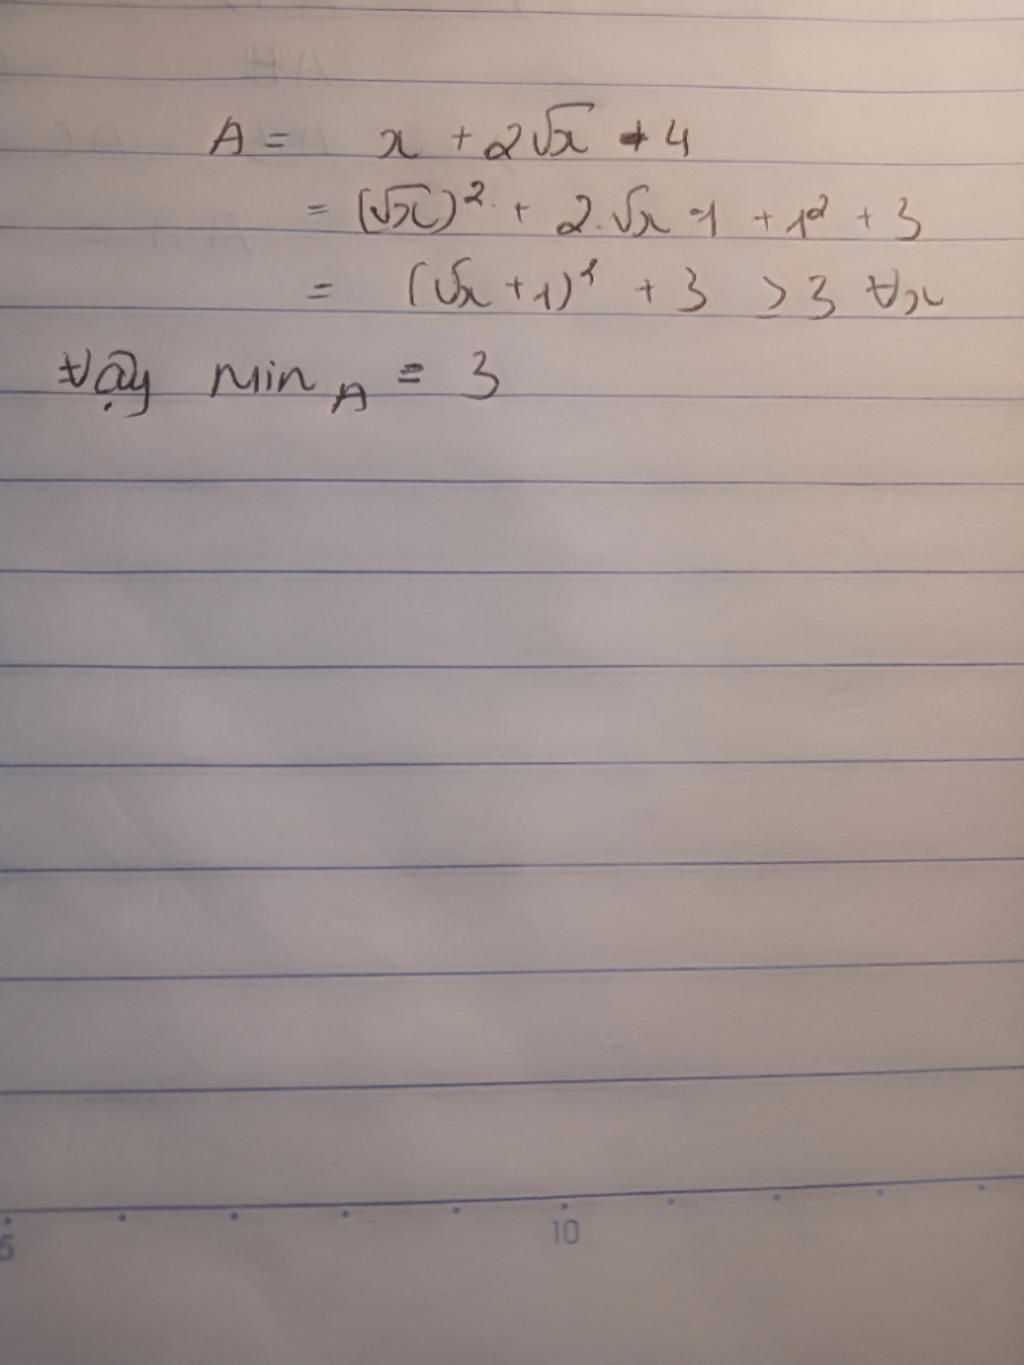 A = x + 2√x + 4
= (√x)² + 2.√x.1 + 1² + 3
= (√x + 1)² + 3 ≥ 3 ∀x
Vậy Min A = 3
5 10